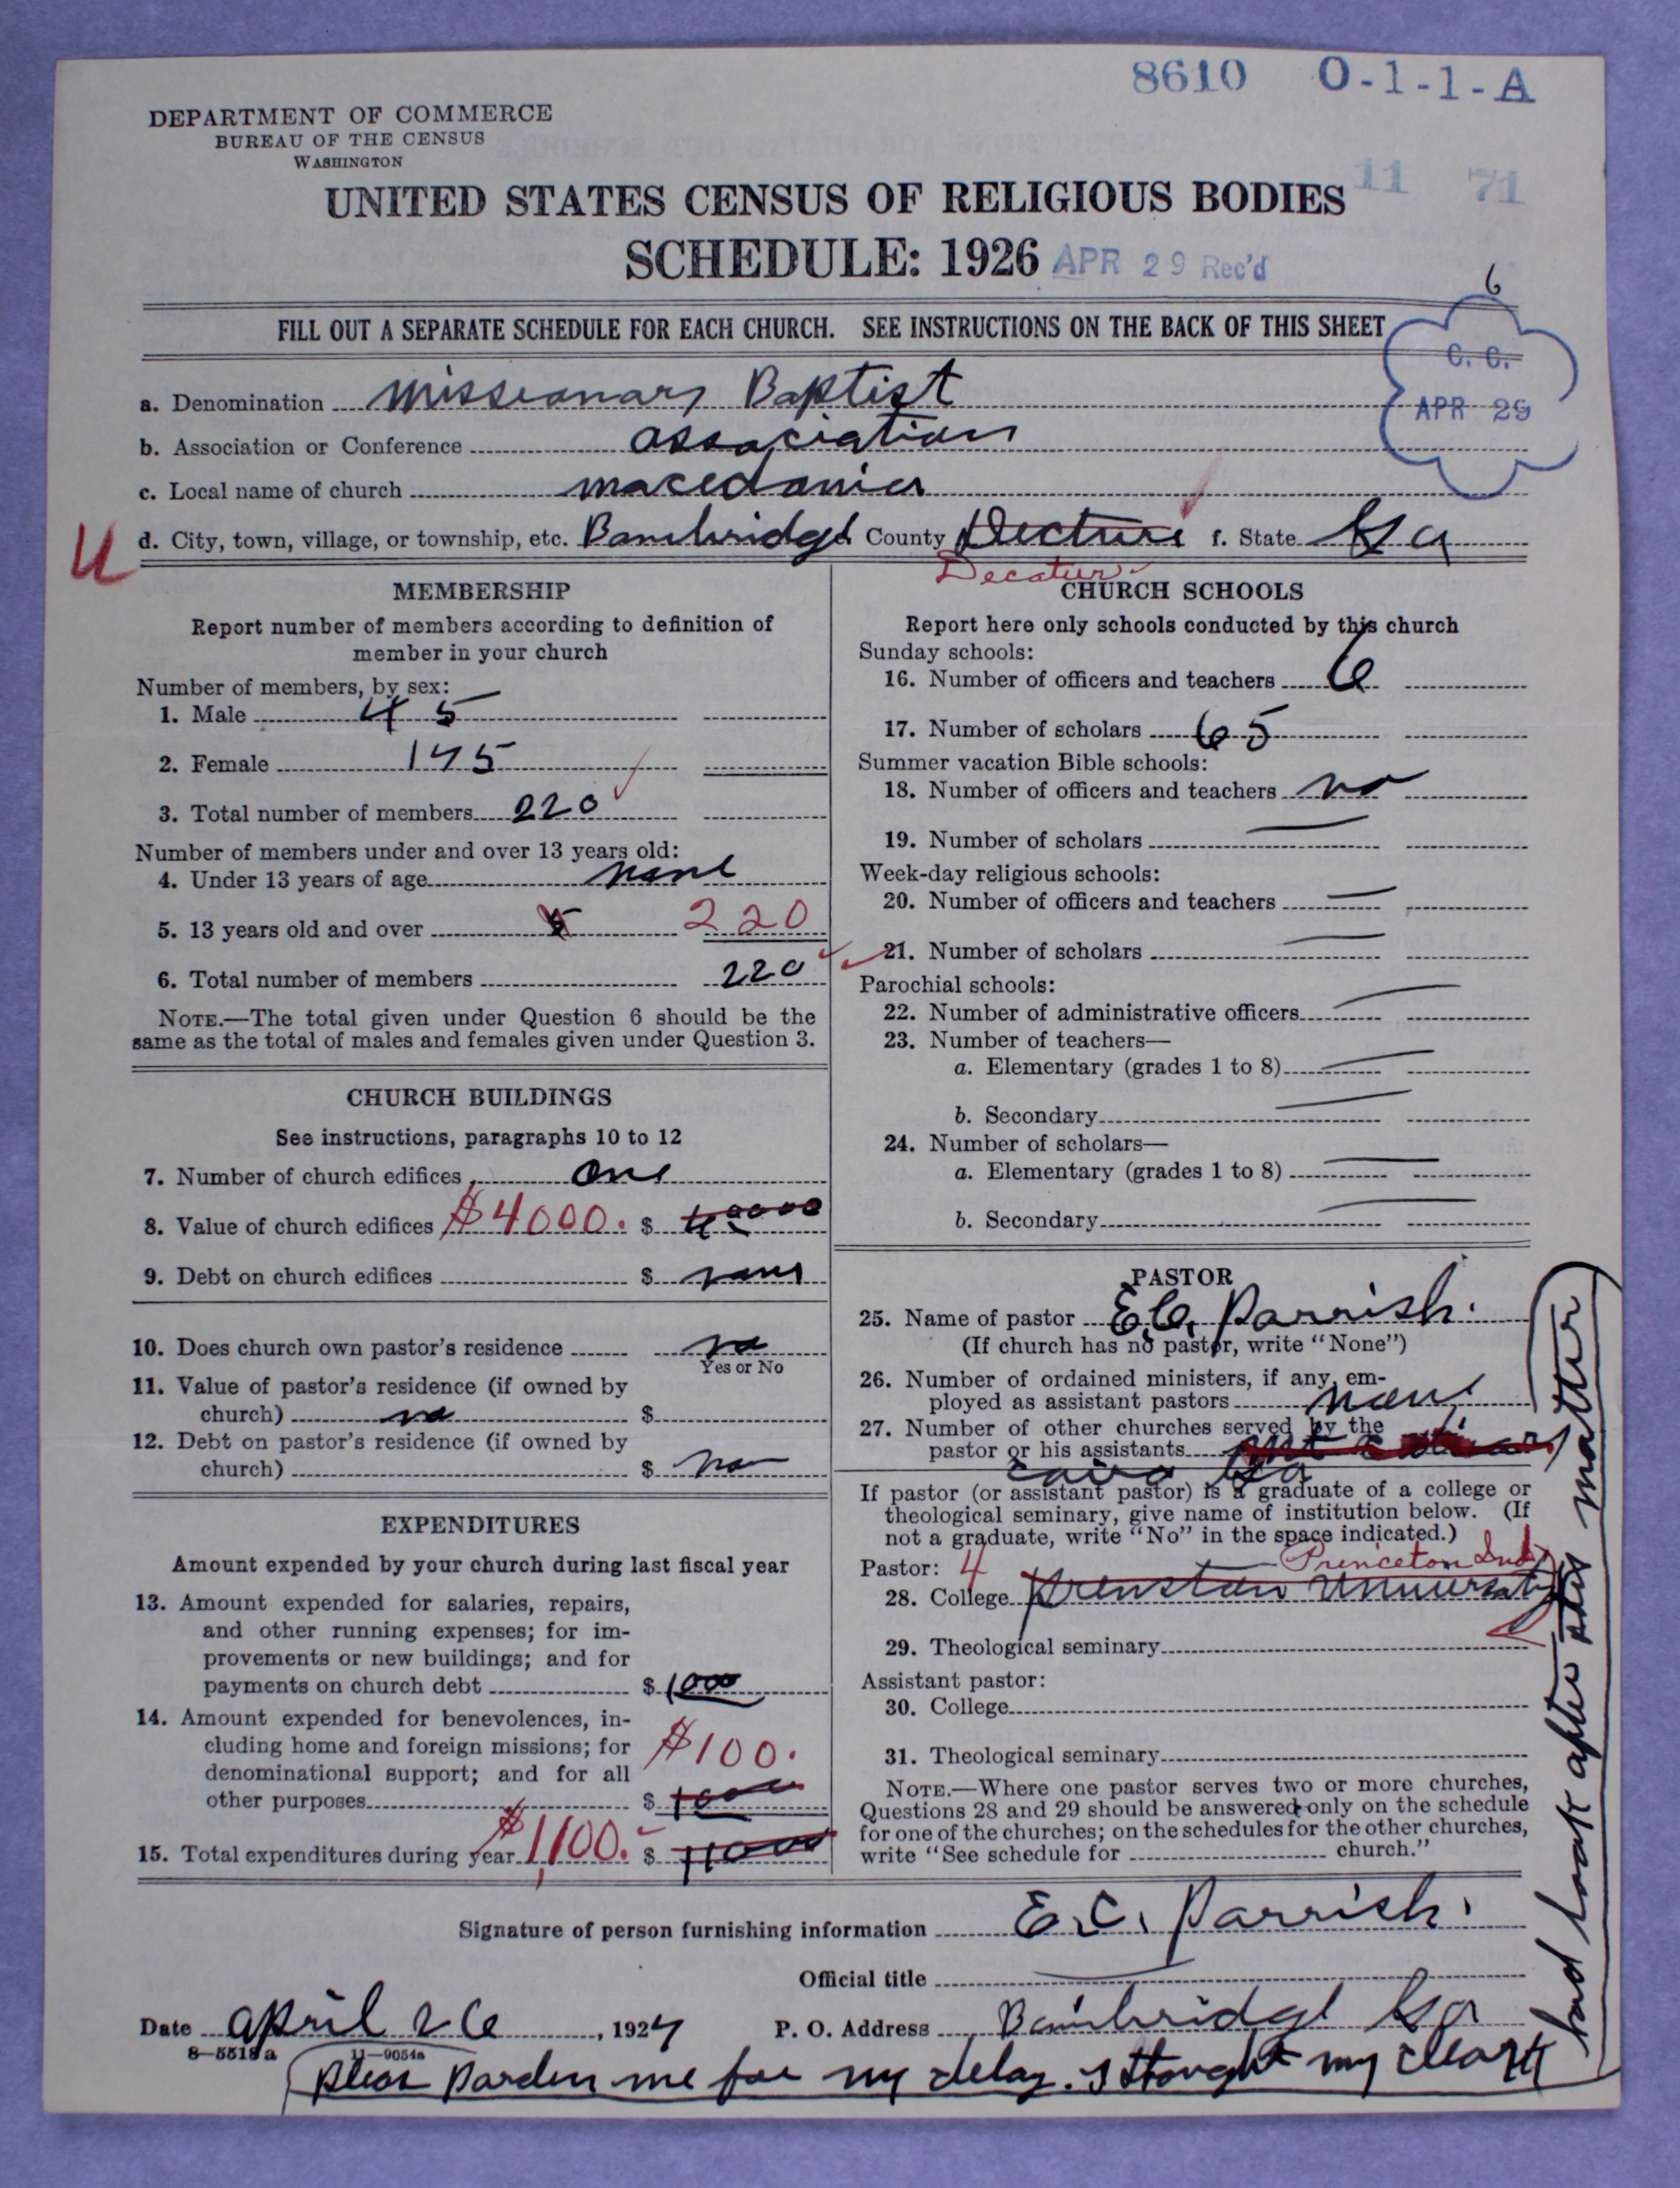 8610 O-1-1-A
DEPARTMENT OF COMMERCE
BUREAU OF THE CENSUS
WASHINGTON
11 71
UNITED STATES CENSUS OF RELIGIOUS BODIES
SCHEDULE: 1926 APR 29 Rec'd
6
FILL OUT A SEPARATE SCHEDULE FOR EACH CHURCH. SEE INSTRUCTIONS ON THE BACK OF THIS SHEET
C. C.
APR 29
a. Denomination Missionary Baptist
b. Association or Conference association
c. Local name of church macedonia
U
d. City, town, village, or township, etc. Bainbridge County f. State Ga
Decatur
MEMBERSHIP
Report number of members according to definition of
member in your church
Number of members, by sex:
1. Male 45
2. Female 175
3. Total number of members 220
Number of members under and over 13 years old:
4. Under 13 years of age none
5. 13 years old and over 220
6. Total number of members 220
NOTE.—The total given under Question 6 should be the
same as the total of males and females given under Question 3.
CHURCH BUILDINGS
See instructions, paragraphs 10 to 12
7. Number of church edifices one
8. Value of church edifices $4000. $
9. Debt on church edifices $ none
10. Does church own pastor's residence no
Yes or No
11. Value of pastor's residence (if owned by
church) no $
12. Debt on pastor's residence (if owned by
church) $ no
EXPENDITURES
Amount expended by your church during last fiscal year
13. Amount expended for salaries, repairs,
and other running expenses; for im-
provements or new buildings; and for
payments on church debt $ 1000
14. Amount expended for benevolences, in-
cluding home and foreign missions; for
denominational support; and for all
other purposes $100. $
15. Total expenditures during year $1,100. $ 11000
CHURCH SCHOOLS
Report here only schools conducted by this church
Sunday schools:
16. Number of officers and teachers 6
17. Number of scholars 65
Summer vacation Bible schools:
18. Number of officers and teachers no
19. Number of scholars —
Week-day religious schools:
20. Number of officers and teachers —
21. Number of scholars —
Parochial schools:
22. Number of administrative officers —
23. Number of teachers—
a. Elementary (grades 1 to 8) —
b. Secondary —
24. Number of scholars—
a. Elementary (grades 1 to 8) —
b. Secondary —
PASTOR
25. Name of pastor E.C. Parrish.
(If church has no pastor, write "None")
26. Number of ordained ministers, if any, em-
ployed as assistant pastors none
27. Number of other churches served by the
pastor or his assistants
cairo Ga
If pastor (or assistant pastor) is a graduate of a college or
theological seminary, give name of institution below. (If
not a graduate, write "No" in the space indicated.)
Pastor: 4 Princeton Ind
28. College University
29. Theological seminary
Assistant pastor:
30. College
31. Theological seminary
NOTE.—Where one pastor serves two or more churches,
Questions 28 and 29 should be answered only on the schedule
for one of the churches; on the schedules for the other churches,
write "See schedule for church."
Signature of person furnishing information E.C. Parrish.
Official title
Date april 26, 1927 P. O. Address Bainbridge Ga
8—5518a 11—9054a
pleas pardon me for my delay. I thought my cleark
had look after this matter